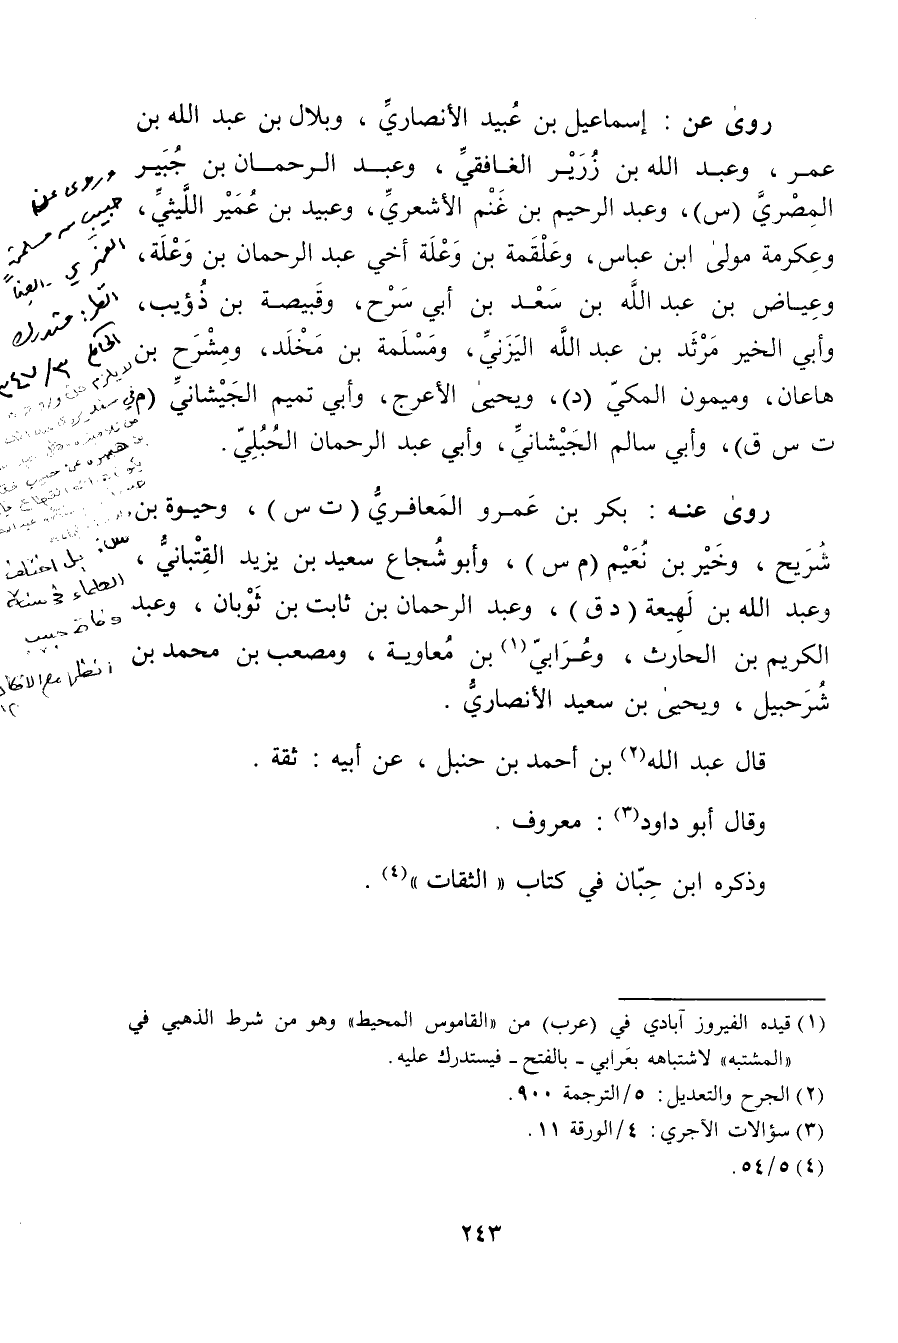 روىٰ عن : إسماعيل بن عُبيد الأنصاريِّ ، وبلال بن عبد الله بن
عمر ، وعبد الله بن زُرَيْر الغافقيِّ ، وعبد الرحمان بن جُبَير
المِصْريِّ (س)، وعبد الرحيم بن غَنْم الأشعريِّ، وعبيد بن عُمَيْر اللَّيثيِّ،
وعِكرمة مولىٰ ابن عباس، وعَلْقمة بن وَعْلَة أخي عبد الرحمان بن وَعْلَة،
وعِياض بن عبد اللَّه بن سَعْد بن أبي سَرْح، وقَبيصة بن ذُؤيب،
وأبي الخير مَرْثَد بن عبد اللَّه اليَزَنيِّ، ومَسْلَمة بن مَخْلَد، ومِشْرَح بن
هاعان، وميمون المكيّ (د)، ويحيىٰ الأعرج، وأبي تميم الجَيْشانيِّ (م
ت س ق)، وأبي سالم الجَيْشانيِّ، وأبي عبد الرحمان الحُبُليّ.
روىٰ عنه : بكر بن عَمرو المَعافريُّ (ت س) ، وحيوة بن
شُرَيح ، وخَيْر بن نُعَيْم (م س) ، وأبو شُجاع سعيد بن يزيد القِتْبانيُّ ،
وعبد الله بن لَهِيعة (د ق) ، وعبد الرحمان بن ثابت بن ثَوْبان ، وعبد
الكريم بن الحارث ، وعُرَابيّ(١) بن مُعاوية ، ومصعب بن محمد بن
شُرَحبيل ، ويحيىٰ بن سعيد الأنصاريُّ .
قال عبد الله(٢) بن أحمد بن حنبل ، عن أبيه : ثقة .
وقال أبو داود(٣) : معروف .
وذكره ابن حِبّان في كتاب « الثقات »(٤) .
(١) قيده الفيروز آبادي في (عرب) من «القاموس المحيط» وهو من شرط الذهبي في
«المشتبه» لاشتباهه بعَرابي - بالفتح - فيستدرك عليه.
(٢) الجرح والتعديل: ٥/الترجمة ٩٠٠.
(٣) سؤالات الآجري: ٤/الورقة ١١.
(٤) ٥/٥٤.
٢٤٣
وروى عن
حبيب بن مسلمة
الفهري
انظر: مستدرك
الحاكم ٣/٣٤٧
بل اختلف
العلماء في سنة
وفاة حبيب